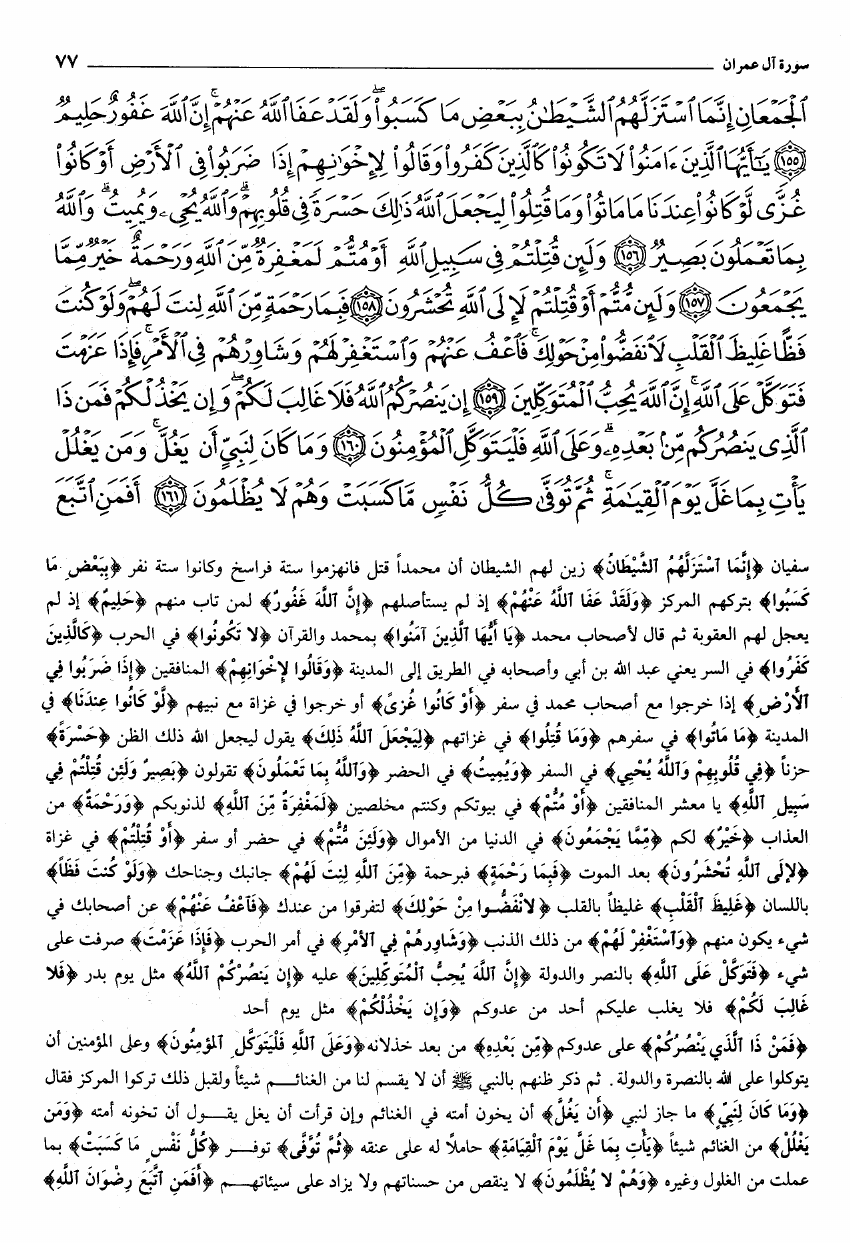 سورة آل عمران ٧٧
ٱلۡجَمۡعَانِ إِنَّمَا ٱسۡتَزَلَّهُمُ ٱلشَّيۡطَٰنُ بِبَعۡضِ مَا كَسَبُواْۖ وَلَقَدۡ عَفَا ٱللَّهُ عَنۡهُمۡۗ إِنَّ ٱللَّهَ غَفُورٌ حَلِيمٌ
١٥٥ يَٰٓأَيُّهَا ٱلَّذِينَ ءَامَنُواْ لَا تَكُونُواْ كَٱلَّذِينَ كَفَرُواْ وَقَالُواْ لِإِخۡوَٰنِهِمۡ إِذَا ضَرَبُواْ فِي ٱلۡأَرۡضِ أَوۡ كَانُواْ
غُزّٗى لَّوۡ كَانُواْ عِندَنَا مَا مَاتُواْ وَمَا قُتِلُواْ لِيَجۡعَلَ ٱللَّهُ ذَٰلِكَ حَسۡرَةٗ فِي قُلُوبِهِمۡۗ وَٱللَّهُ يُحۡيِۦ وَيُمِيتُۗ وَٱللَّهُ
بِمَا تَعۡمَلُونَ بَصِيرٞ ١٥٦ وَلَئِن قُتِلۡتُمۡ فِي سَبِيلِ ٱللَّهِ أَوۡ مُتُّمۡ لَمَغۡفِرَةٞ مِّنَ ٱللَّهِ وَرَحۡمَةٌ خَيۡرٞ مِّمَّا
يَجۡمَعُونَ ١٥٧ وَلَئِن مُّتُّمۡ أَوۡ قُتِلۡتُمۡ لَإِلَى ٱللَّهِ تُحۡشَرُونَ ١٥٨ فَبِمَا رَحۡمَةٖ مِّنَ ٱللَّهِ لِنتَ لَهُمۡۖ وَلَوۡ كُنتَ
فَظًّا غَلِيظَ ٱلۡقَلۡبِ لَٱنفَضُّواْ مِنۡ حَوۡلِكَۖ فَٱعۡفُ عَنۡهُمۡ وَٱسۡتَغۡفِرۡ لَهُمۡ وَشَاوِرۡهُمۡ فِي ٱلۡأَمۡرِۖ فَإِذَا عَزَمۡتَ
فَتَوَكَّلۡ عَلَى ٱللَّهِۚ إِنَّ ٱللَّهَ يُحِبُّ ٱلۡمُتَوَكِّلِينَ ١٥٩ إِن يَنصُرۡكُمُ ٱللَّهُ فَلَا غَالِبَ لَكُمۡۖ وَإِن يَخۡذُلۡكُمۡ فَمَن ذَا
ٱلَّذِي يَنصُرُكُم مِّنۢ بَعۡدِهِۦۗ وَعَلَى ٱللَّهِ فَلۡيَتَوَكَّلِ ٱلۡمُؤۡمِنُونَ ١٦٠ وَمَا كَانَ لِنَبِيٍّ أَن يَغُلَّۚ وَمَن يَغۡلُلۡ
يَأۡتِ بِمَا غَلَّ يَوۡمَ ٱلۡقِيَٰمَةِۚ ثُمَّ تُوَفَّىٰ كُلُّ نَفۡسٖ مَّا كَسَبَتۡ وَهُمۡ لَا يُظۡلَمُونَ ١٦١ أَفَمَنِ ٱتَّبَعَ
سفيان ﴿إِنَّمَا ٱسْتَزَلَّهُمُ ٱلشَّيْطَانُ﴾ زين لهم الشيطان أن محمداً قتل فانهزموا ستة فراسخ وكانوا ستة نفر ﴿بِبَعْضِ مَا
كَسَبُوا﴾ بتركهم المركز ﴿وَلَقَدْ عَفَا ٱللَّهُ عَنْهُمْ﴾ إذ لم يستأصلهم ﴿إِنَّ ٱللَّهَ غَفُورٌ﴾ لمن تاب منهم ﴿حَلِيمٌ﴾ إذ لم
يعجل لهم العقوبة ثم قال لأصحاب محمد ﴿يَا أَيُّهَا ٱلَّذِينَ آمَنُوا﴾ بمحمد والقرآن ﴿لا تَكُونُوا﴾ في الحرب ﴿كَالَّذِينَ
كَفَرُوا﴾ في السر يعني عبد الله بن أبي وأصحابه في الطريق إلى المدينة ﴿وَقَالُوا لإِخْوَانِهِمْ﴾ المنافقين ﴿إِذَا ضَرَبُوا فِي
ٱلأَرْضِ﴾ إذا خرجوا مع أصحاب محمد في سفر ﴿أَوْ كَانُوا غُزىً﴾ أو خرجوا في غزاة مع نبيهم ﴿لَّوْ كَانُوا عِندَنَا﴾ في
المدينة ﴿مَا مَاتُوا﴾ في سفرهم ﴿وَمَا قُتِلُوا﴾ في غزاتهم ﴿لِيَجْعَلَ ٱللَّهُ ذَلِكَ﴾ يقول ليجعل الله ذلك الظن ﴿حَسْرَةً﴾
حزناً ﴿فِي قُلُوبِهِمْ وَٱللَّهُ يُحْيِي﴾ في السفر ﴿وَيُمِيتُ﴾ في الحضر ﴿وَٱللَّهُ بِمَا تَعْمَلُونَ﴾ تقولون ﴿بَصِيرٌ وَلَئِن قُتِلْتُمْ فِي
سَبِيلِ ٱللَّهِ﴾ يا معشر المنافقين ﴿أَوْ مُتُّمْ﴾ في بيوتكم وكنتم مخلصين ﴿لَمَغْفِرَةٌ مِّنَ ٱللَّهِ﴾ لذنوبكم ﴿وَرَحْمَةٌ﴾ من
العذاب ﴿خَيْرٌ﴾ لكم ﴿مِّمَّا يَجْمَعُونَ﴾ في الدنيا من الأموال ﴿وَلَئِنْ مُّتُّمْ﴾ في حضر أو سفر ﴿أَوْ قُتِلْتُمْ﴾ في غزاة
﴿لإِلَى ٱللَّهِ تُحْشَرُونَ﴾ بعد الموت ﴿فَبِمَا رَحْمَةٍ﴾ فبرحمة ﴿مِّنَ ٱللَّهِ لِنتَ لَهُمْ﴾ جانبك وجناحك ﴿وَلَوْ كُنتَ فَظّاً﴾
باللسان ﴿غَلِيظَ ٱلْقَلْبِ﴾ غليظاً بالقلب ﴿لانْفَضُّوا مِنْ حَوْلِكَ﴾ لتفرقوا من عندك ﴿فَٱعْفُ عَنْهُمْ﴾ عن أصحابك في
شيء يكون منهم ﴿وَٱسْتَغْفِرْ لَهُمْ﴾ من ذلك الذنب ﴿وَشَاوِرهُمْ فِي ٱلأَمْرِ﴾ في أمر الحرب ﴿فَإِذَا عَزَمْتَ﴾ صرفت على
شيء ﴿فَتَوَكَّلْ عَلَى ٱللَّهِ﴾ بالنصر والدولة ﴿إِنَّ ٱللَّهَ يُحِبُّ ٱلْمُتَوَكِّلِينَ﴾ عليه ﴿إِن يَنصُرْكُمُ ٱللَّهُ﴾ مثل يوم بدر ﴿فَلا
غَالِبَ لَكُمْ﴾ فلا يغلب عليكم أحد من عدوكم ﴿وَإِن يَخْذُلْكُمْ﴾ مثل يوم أحد
﴿فَمَنْ ذَا ٱلَّذِي يَنْصُرُكُمْ﴾ على عدوكم ﴿مِّن بَعْدِهِ﴾ من بعد خذلانه ﴿وَعَلَى ٱللَّهِ فَلْيَتَوَكَّلِ ٱلمُؤمِنُونَ﴾ وعلى المؤمنين أن
يتوكلوا على الله بالنصرة والدولة. ثم ذكر ظنهم بالنبي ﷺ أن لا يقسم لنا من الغنائم شيئاً ولقبل ذلك تركوا المركز فقال
﴿وَمَا كَانَ لِنَبِيٍّ﴾ ما جاز لنبي ﴿أَن يَغُلَّ﴾ أن يخون أمته في الغنائم وإن قرأت أن يغل يقول أن تخونه أمته ﴿وَمَن
يَغْلُلْ﴾ من الغنائم شيئاً ﴿يَأْتِ بِمَا غَلَّ يَوْمَ ٱلْقِيَامَةِ﴾ حاملاً له على عنقه ﴿ثُمَّ تُوَفَّى﴾ توفر ﴿كُلُّ نَفْسٍ مَا كَسَبَتْ﴾ بما
عملت من الغلول وغيره ﴿وَهُمْ لا يُظْلَمُونَ﴾ لا ينقص من حسناتهم ولا يزاد على سيئاتهم ﴿أَفَمَنِ ٱتَّبَعَ رِضْوَانَ ٱللَّهِ﴾